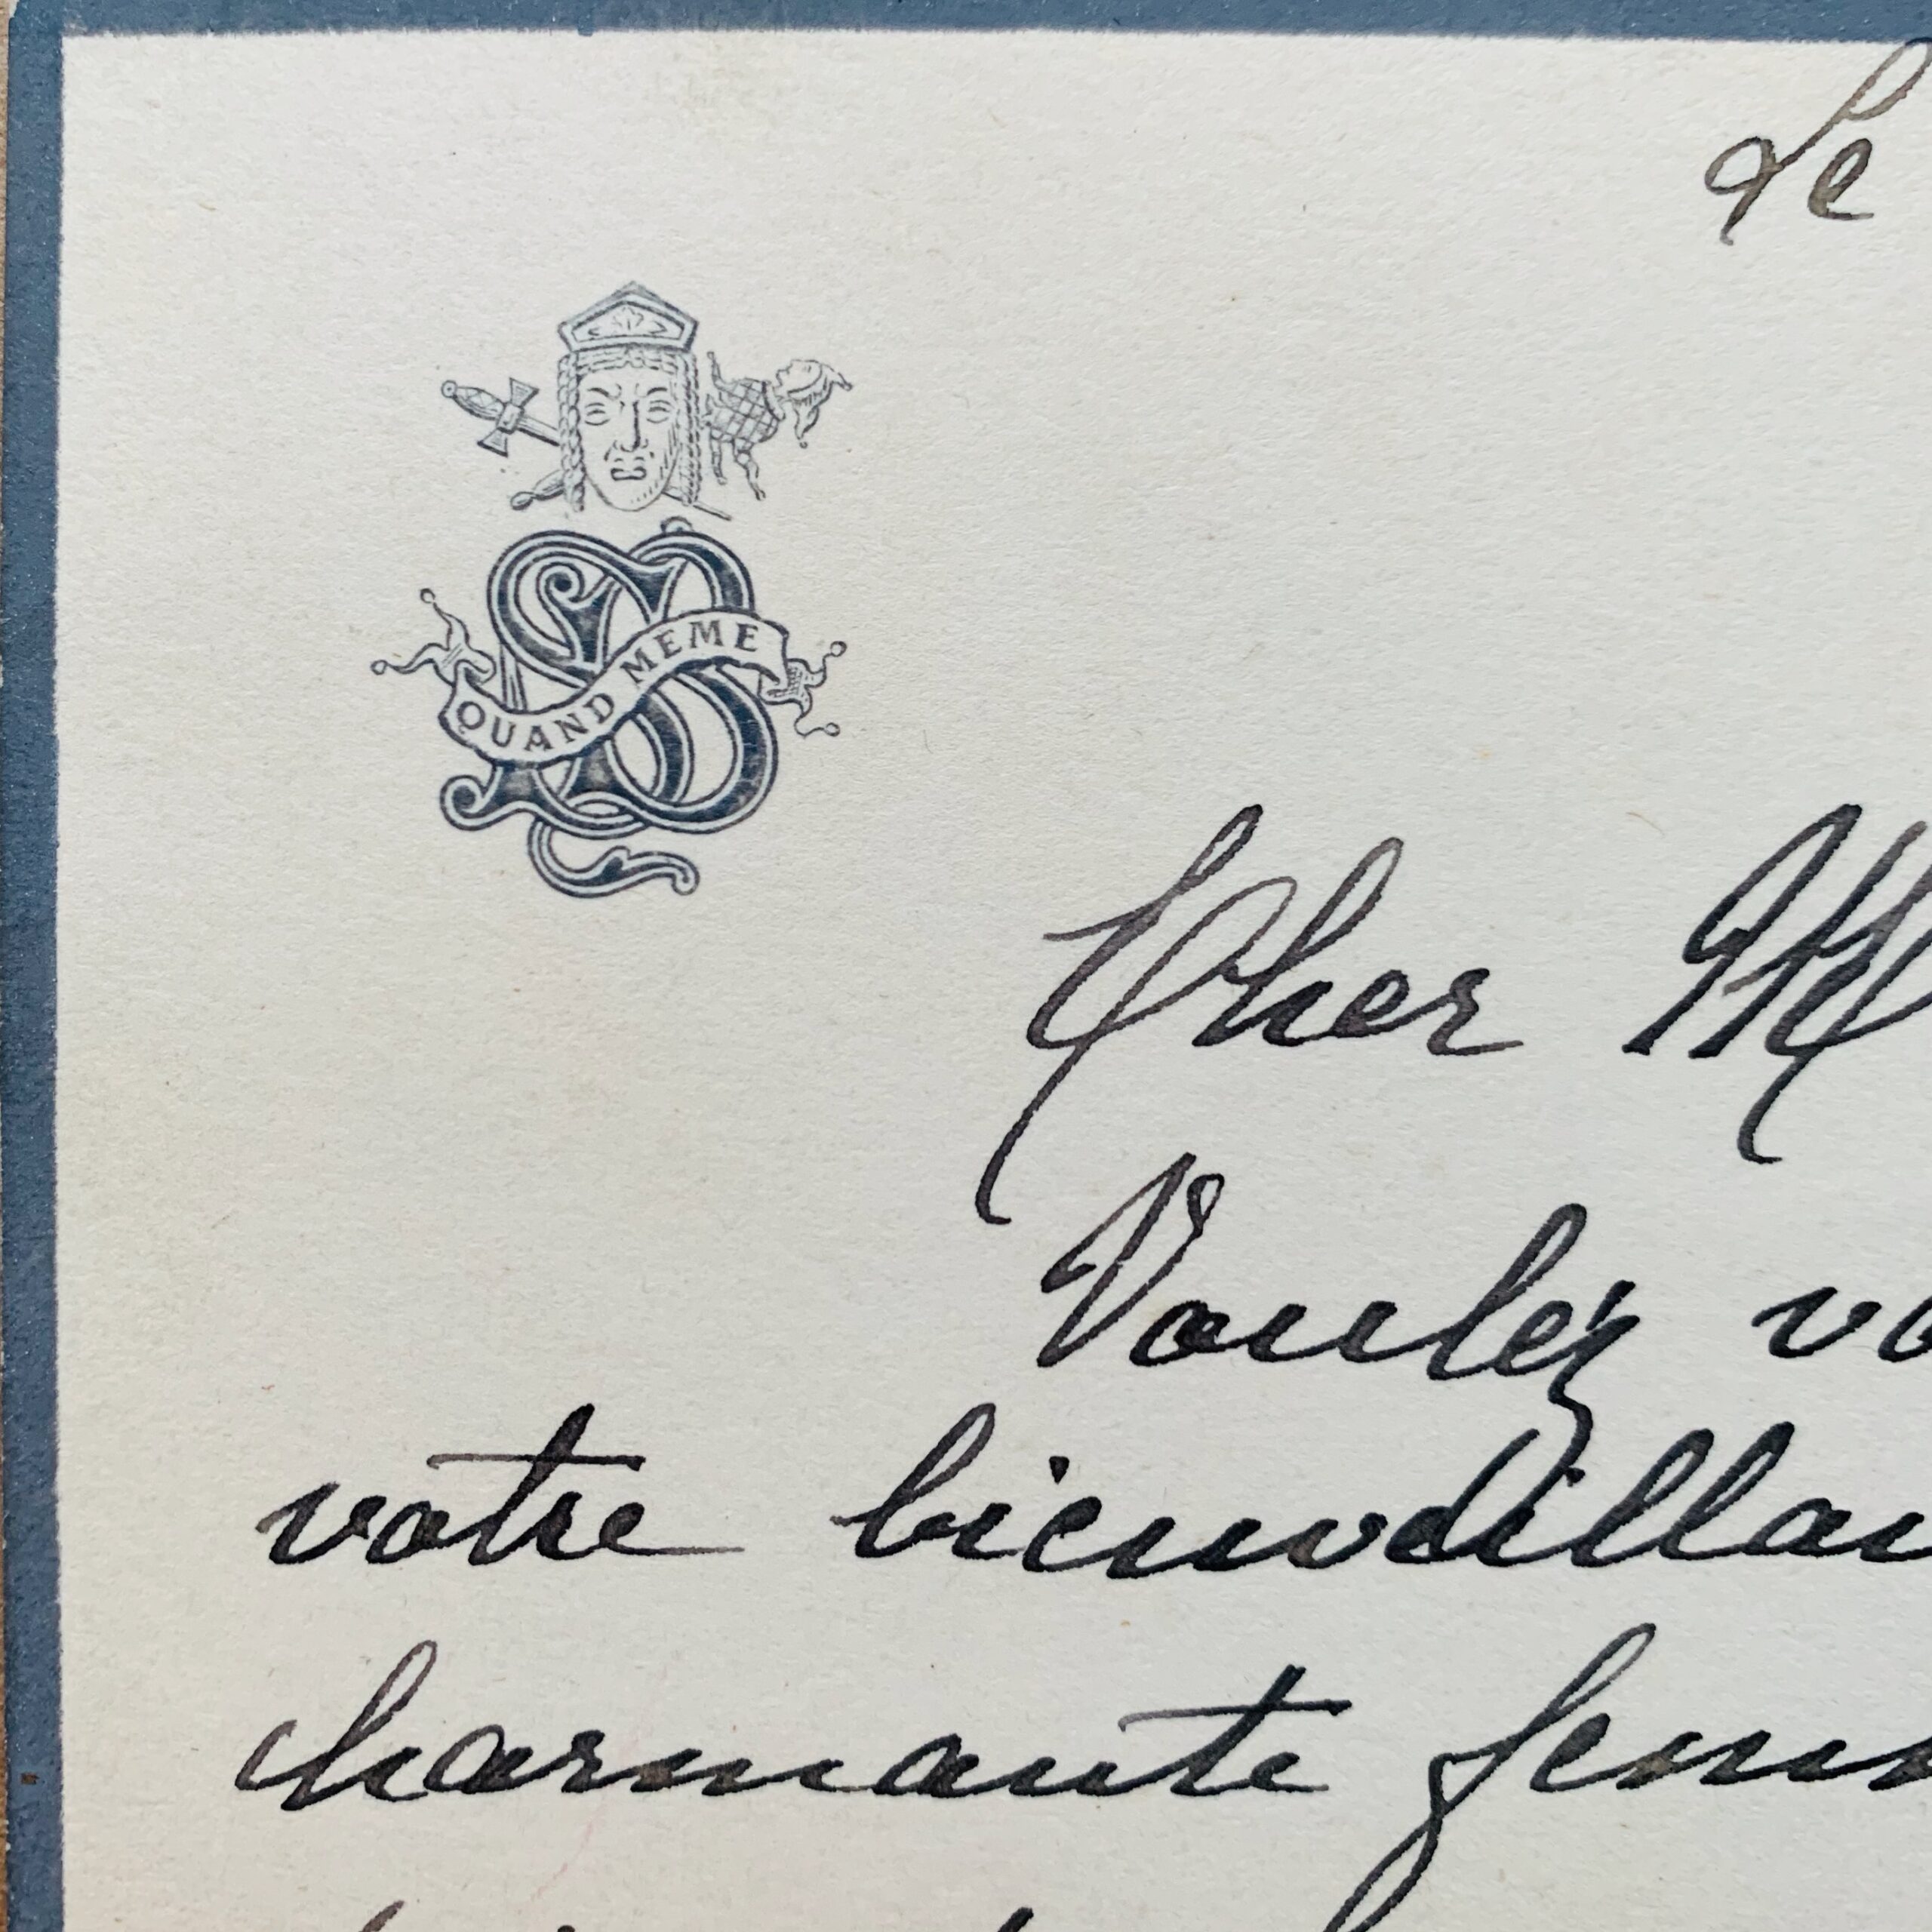 Le
QUAND MEME
SB
Cher M
Voulez vo
votre bienveillan
charmante femm